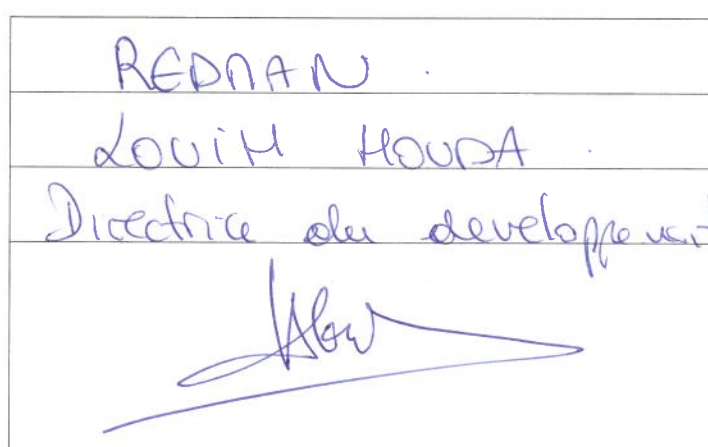 REDMAN .
LOUIM HOUDA .
Directrice du developpement